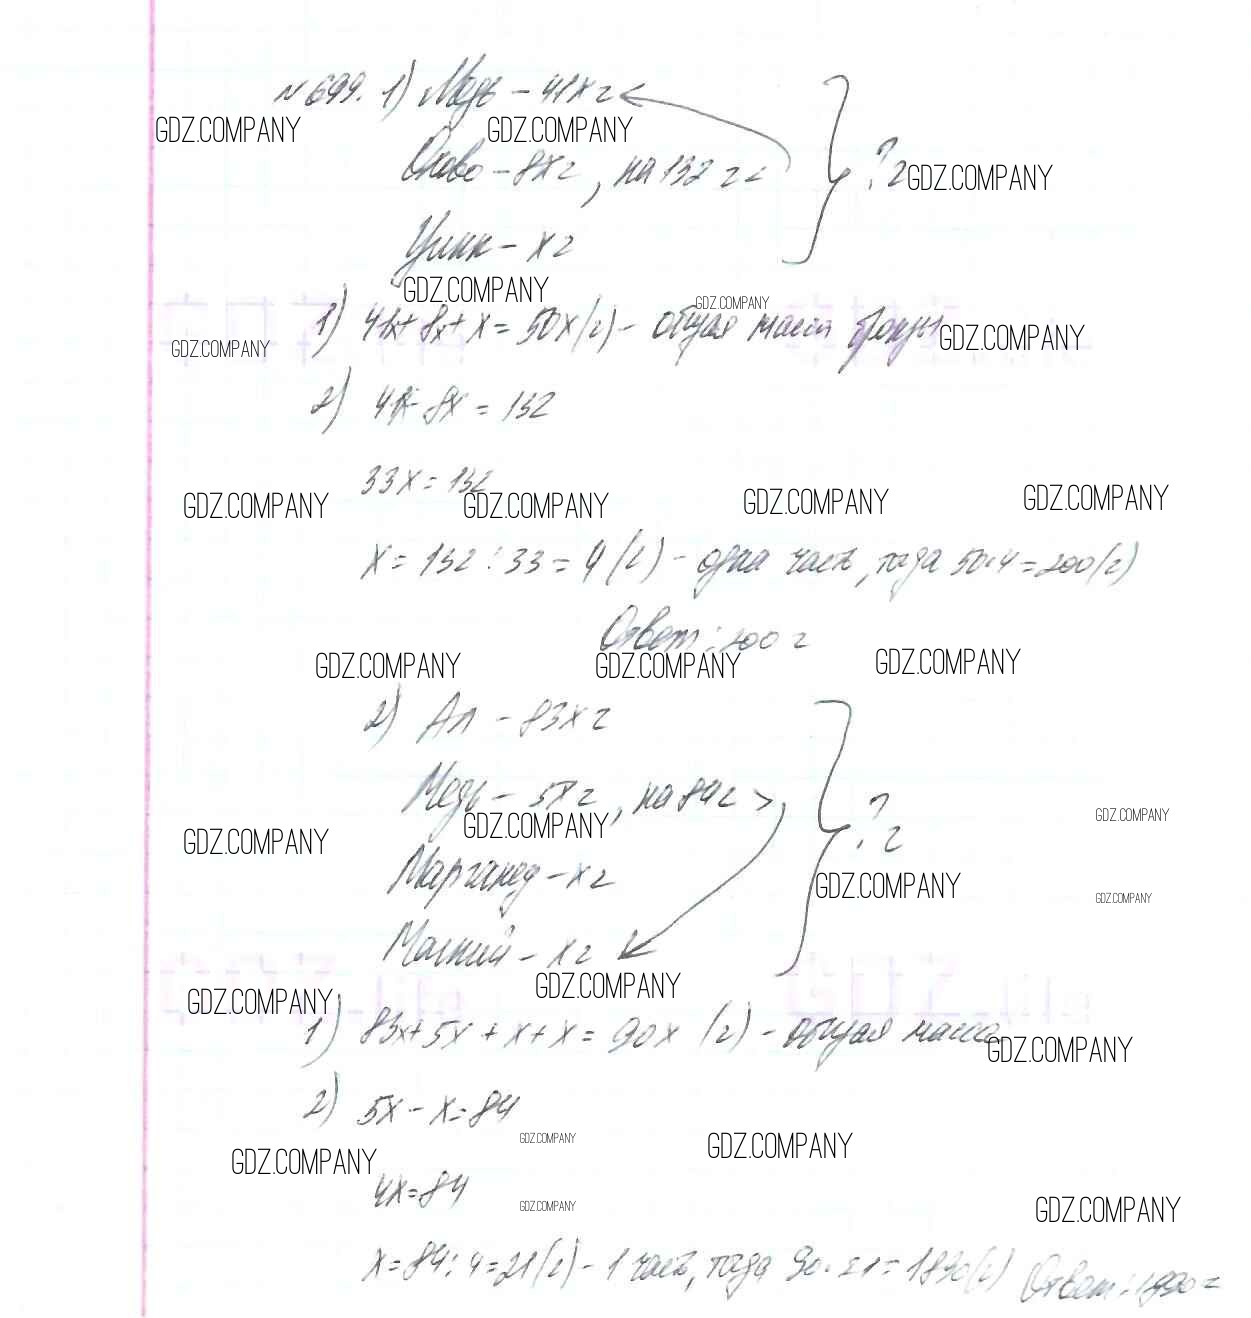 № 699. 1) Медь – 41x г
GDZ.COMPANY GDZ.COMPANY
Олово – 8x г, на 132 г < ? г GDZ.COMPANY
Цинк – x г
GDZ.COMPANY GDZ.COMPANY
1) 41x + 8x + x = 50x (г) – общая масса бронзы GDZ.COMPANY
GDZ.COMPANY
2) 41x - 8x = 132
33x = 132
GDZ.COMPANY GDZ.COMPANY GDZ.COMPANY GDZ.COMPANY
x = 132 : 33 = 4 (г) – одна часть, тогда 50·4 = 200 (г)
Ответ: 200 г
GDZ.COMPANY GDZ.COMPANY GDZ.COMPANY
2) Ал – 83x г
Медь – 5x г, на 84 г > ? г
GDZ.COMPANY GDZ.COMPANY GDZ.COMPANY
Марганец – x г GDZ.COMPANY GDZ.COMPANY
Магний – x г
GDZ.COMPANY GDZ.COMPANY
1) 83x + 5x + x + x = 90x (г) – общая масса
GDZ.COMPANY
2) 5x – x = 84
GDZ.COMPANY GDZ.COMPANY GDZ.COMPANY
4x = 84
GDZ.COMPANY GDZ.COMPANY
x = 84 : 4 = 21 (г) – 1 часть, тогда 90 · 21 = 1890 (г) Ответ: 1890 г